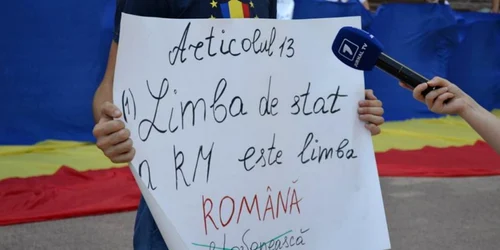 Articolul 13
(1) Limba de stat
a RM este limba
ROMÂNĂ
moldovenească
7
JURNAL TV